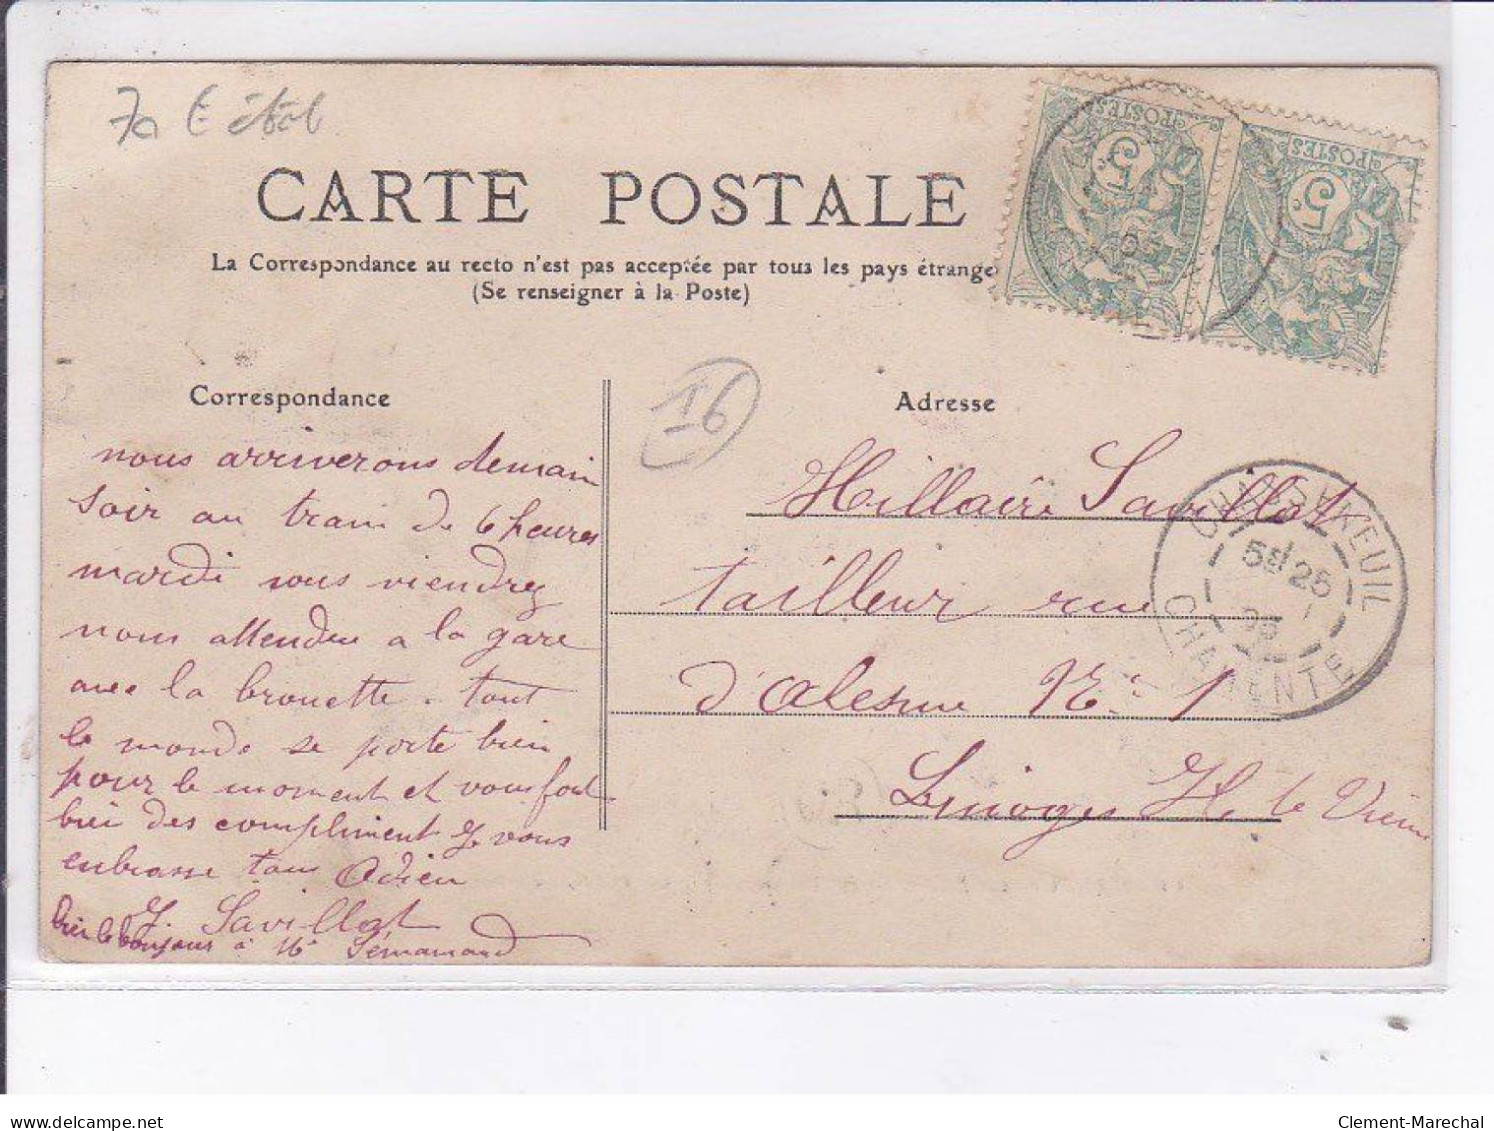 70 € état
CARTE POSTALE
La Correspondance au recto n'est pas acceptée par tous les pays étrange
(Se renseigner à la Poste)
POSTES
5c
POSTES
5c
05
Correspondance
16
Adresse
nous arriverons demain
soir au train de 6 heures
mardi vous viendrez
nous attendre a la gare
avec la brouette. tout
le monde se porte bien
pour le moment et vous font
bien des compliment Je vous
enbrasse tous Adieu
J. Savillat
bien le bonjour à Mr
Hillaire Savillat
tailleur rue
d'alesme No 1
Limoges Hte Vienne
CHARENTE
5E 25
05
Clement-Marechal
delcampe.net